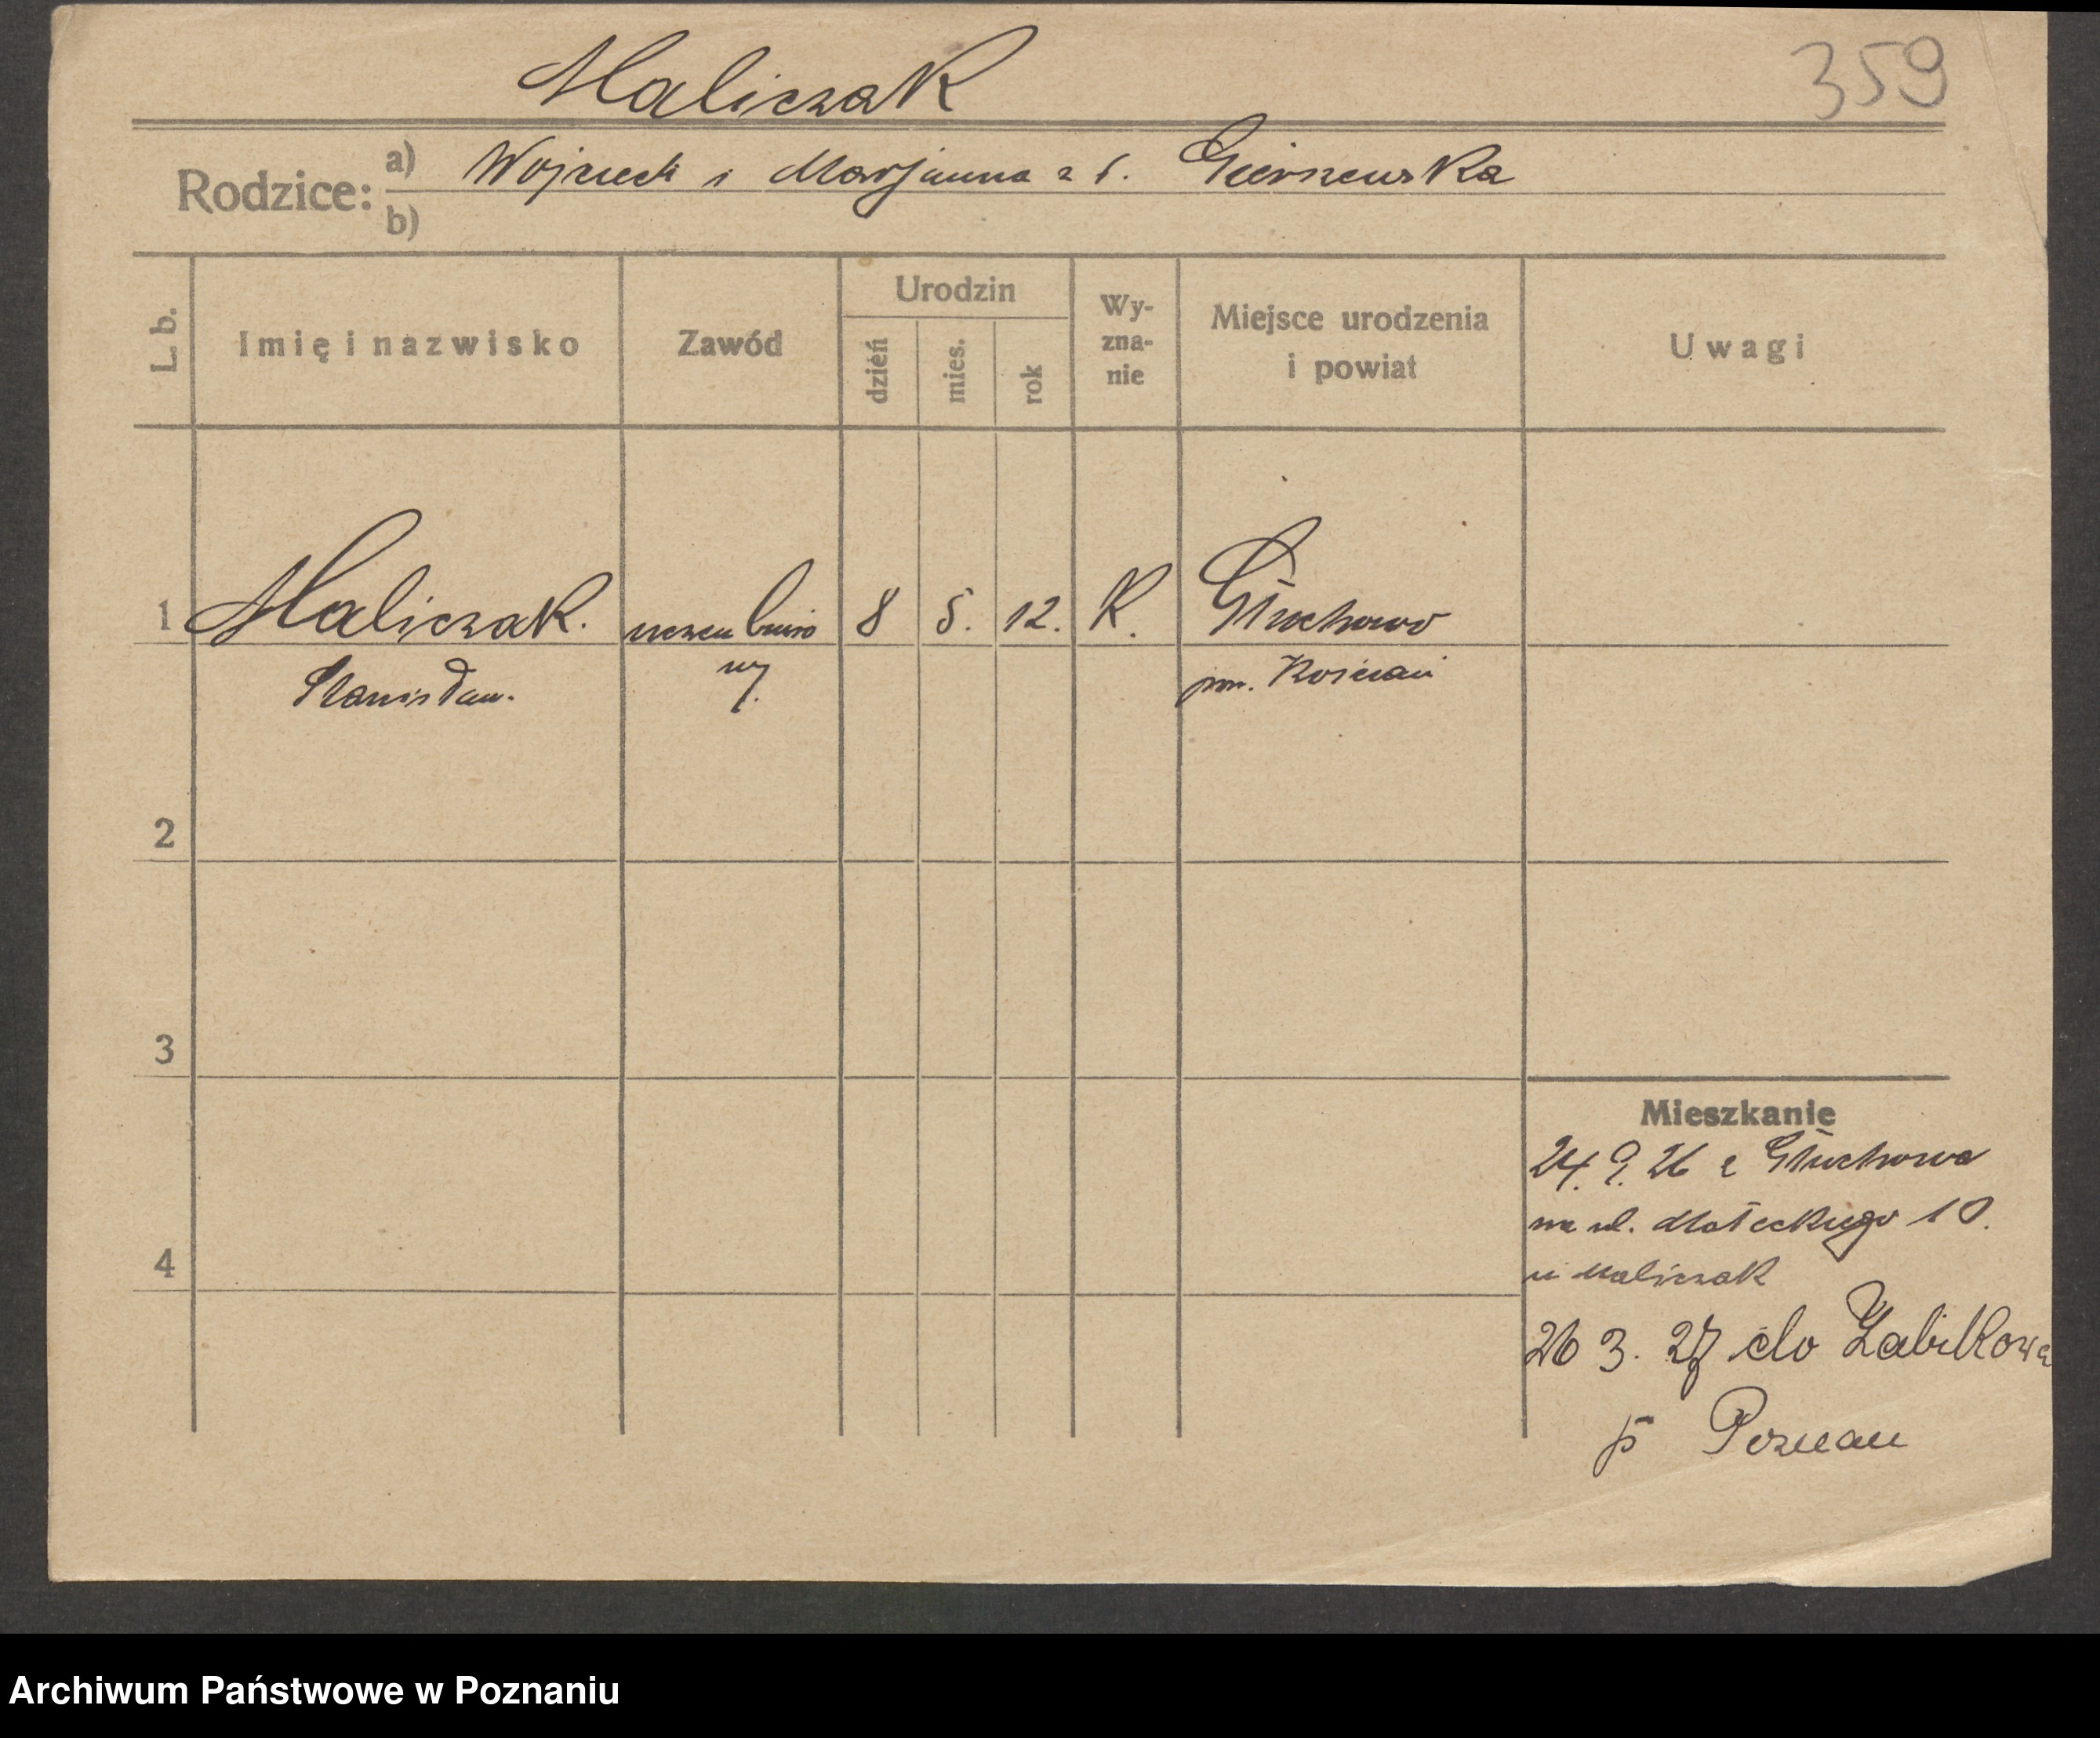 Maliczak
359
Rodzice: a) Wojciech i Marjanna z d. Gierszewska
b)
L. b. Imię i nazwisko Zawód Urodzin dzień mies. rok Wy-zna-nie Miejsce urodzenia i powiat Uwagi
1 Maliczak. uczeń biuro 8 5. 12. K. Głuchowo
Stanisław. wy. pow. Kościan
2
3
4
Mieszkanie
24. 9. 26 z Głuchowa
na ul. Małeckiego 10.
u Maliczak
26 3. 27 do Żabikowa
p Poznań
Archiwum Państwowe w Poznaniu